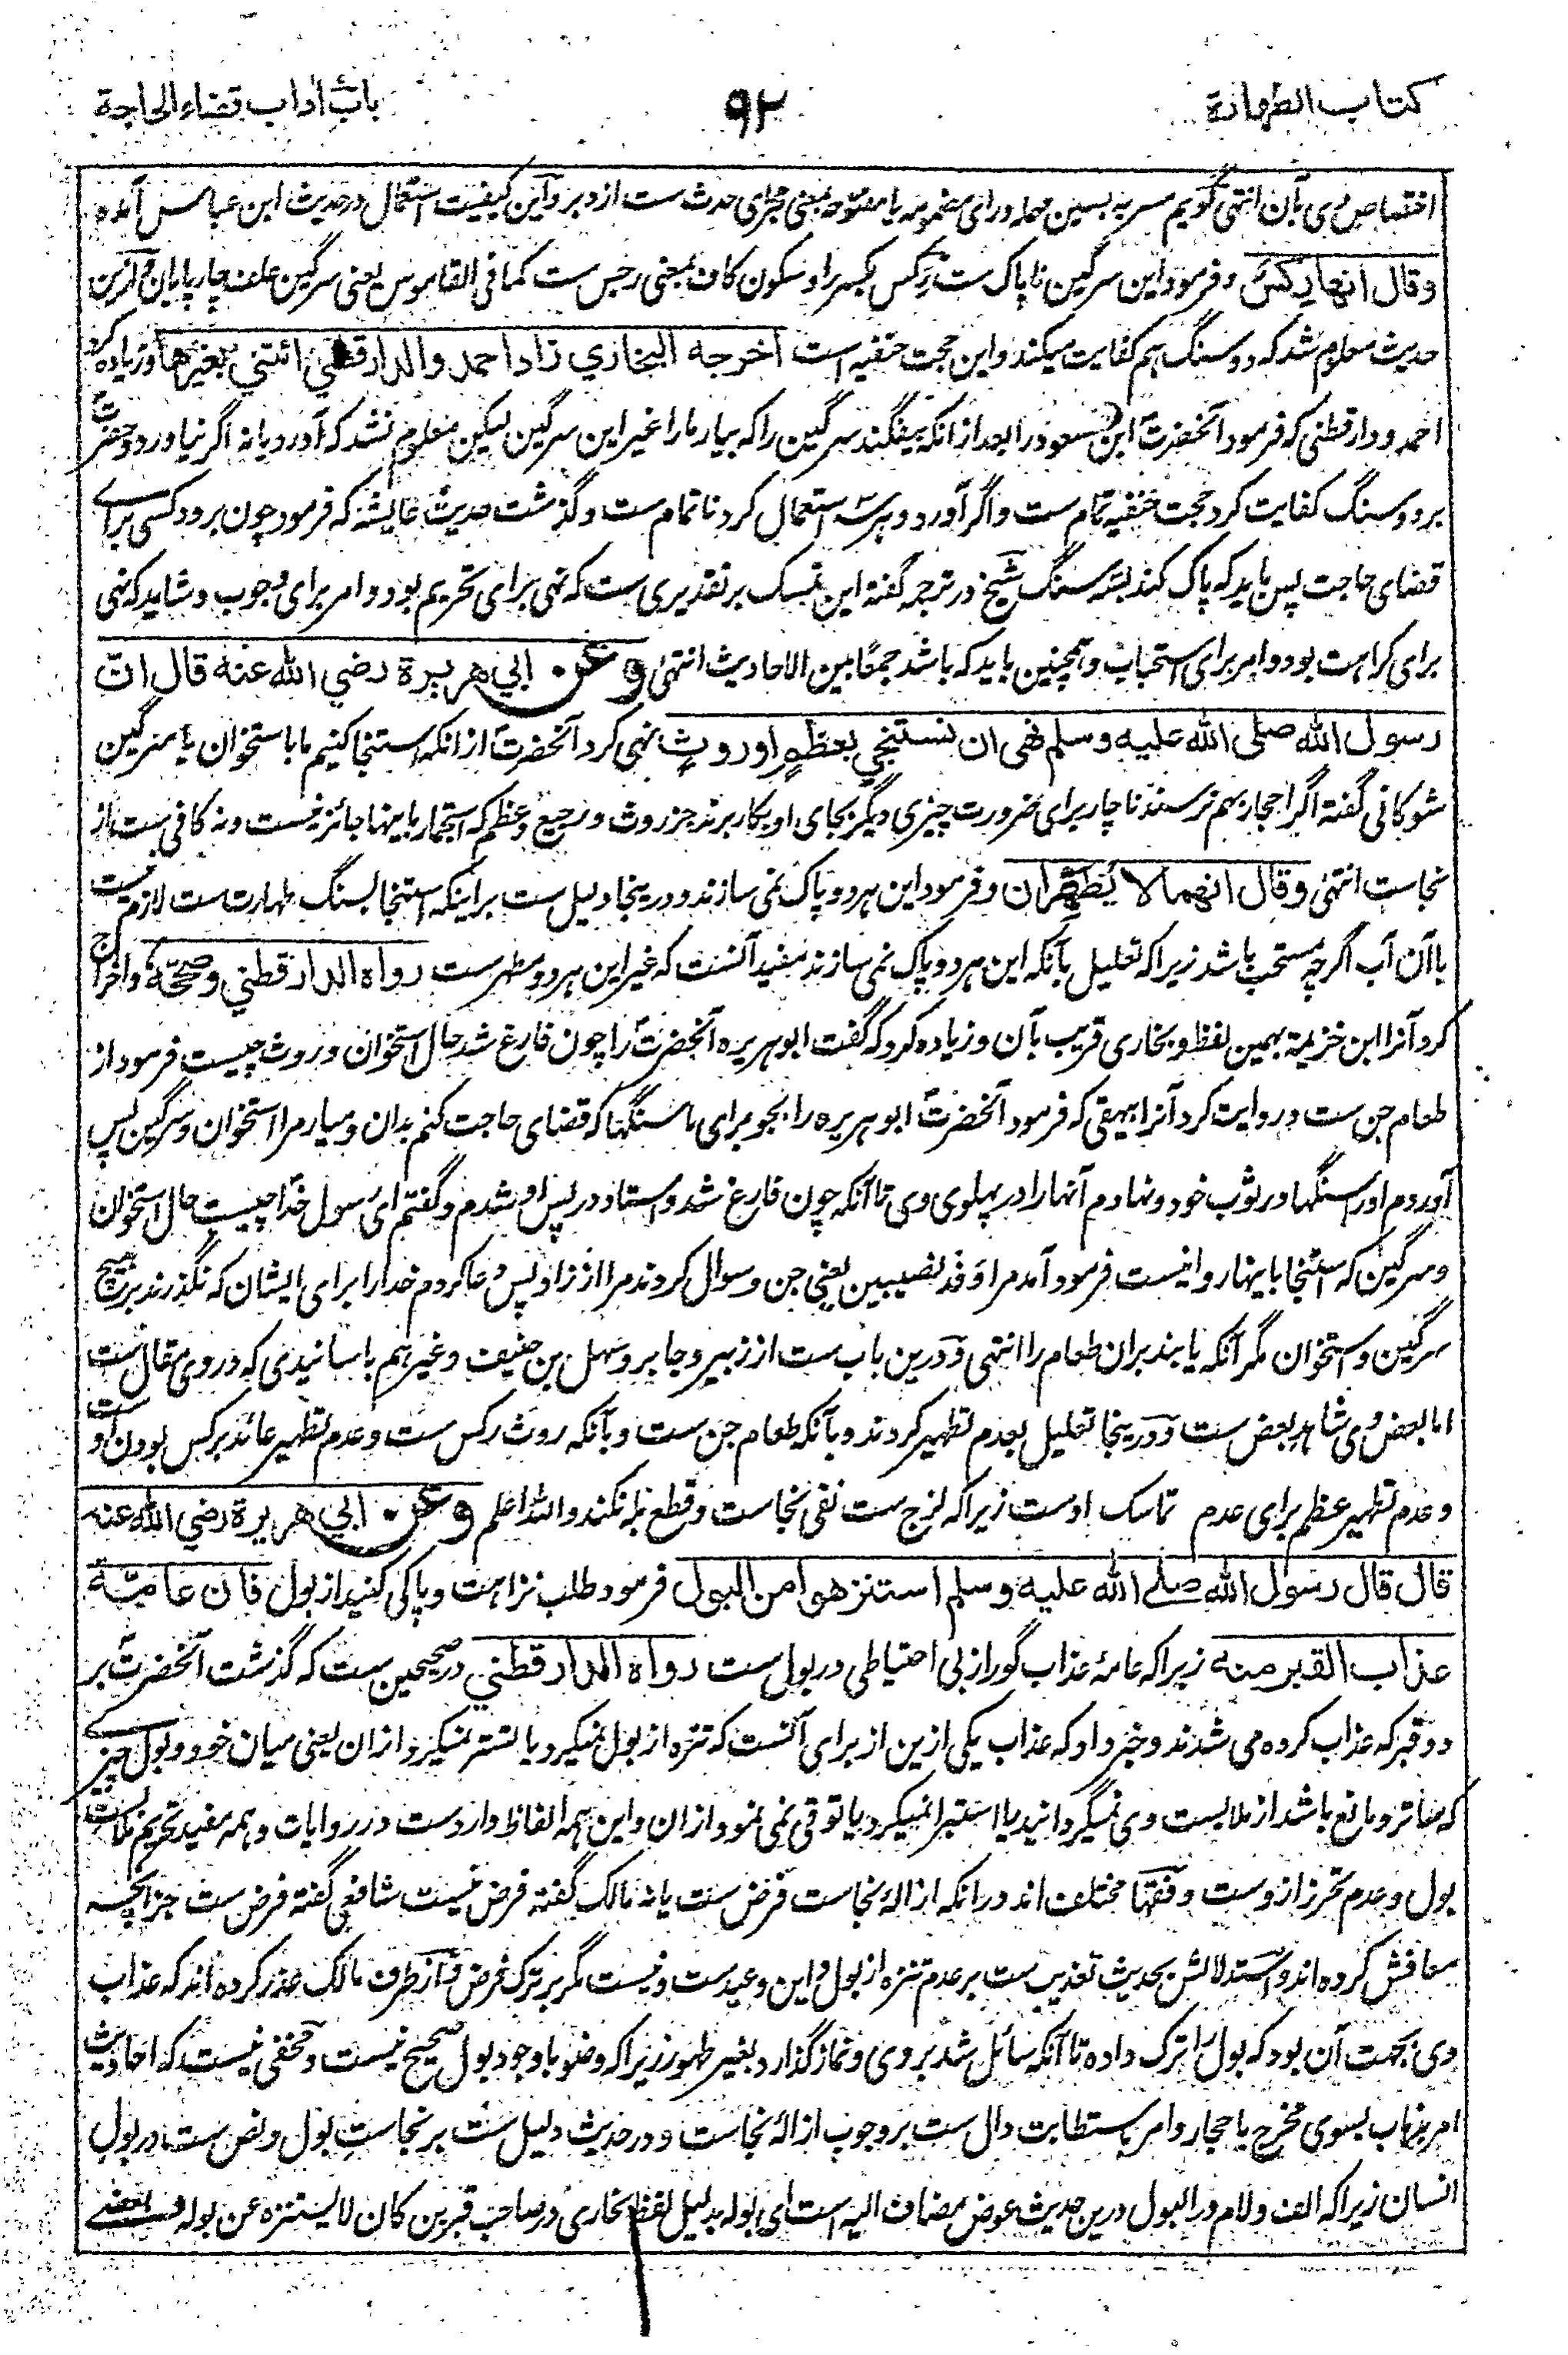 کتاب الطهارة
۹۲
باب آداب قضاء الحاجة
اختصاص وی بآن انتهی گویم مسربه بسین مهمله و رای مضمومه یا مفتوحه بمعنی مجرای حدث ست از دبر و این کیفیت استعمال در حدیث ابن عباس آمده
وقال انها رکس و فرمود این سرگین ناپاک ست رکس بکسر را و سکون کاف بمعنی رجس ست کما فی القاموس یعنی سرگین علف چارپایان و ازین
حدیث معلوم شد که دو سنگ هم کفایت میکند و این حجت حنفیه است اخرجه البخاري زاد احمد والدارقطني ائتني بغيرها و زیاده کرد
احمد و دارقطنی که فرمود آنحضرت ابن مسعود را بعد از انکه بیفگند سرگین را که بیار ما را غیر این سرگین لیکن معلوم نشد که آورد یا نه اگر نیاورد و حضرت
بر دو سنگ کفایت کرد حجت حنفیه تمام ست و اگر آورد و بهر سه استعمال کرد ناتمام ست و گذشت حدیث عایشه که فرمود چون برود کسی برای
قضای حاجت پس باید که پاک کند بسه سنگ شیخ در ترجمه گفته این تمسک بر تقدیری ست که نهی برای تحریم بود و امر برای وجوب و شاید که نهی
برای کراهت بود و امر برای استحباب و همچنین باید که باشد جمعا بین الاحادیث انتهی وعن ابي هريرة رضي الله عنه قال ان
رسول الله صلى الله عليه وسلم نهى ان نستنجي بعظم او روث نهی کرد آنحضرت از انکه استنجا کنیم ما باستخوان یا سرگین
شوکانی گفته اگر احجار بهم نرسند ناچار برای ضرورت چیزی دیگر بجای او بکار برند جز روث و رجیع و عظم که استجمار باینها جائز نیست و نه کافی ست از
نجاست انتهی وقال انهما لا يطهران و فرمود این هر دو پاک نمی سازند و درینجا دلیل ست بر اینکه استنجا بسنگ طهارت ست لازم نیست
باآن آب اگرچه مستحب باشد زیرا که تعلیل بآنکه این هر دو پاک نمی سازند مفید آنست که غیر این هر دو مطهر ست رواه الدارقطني وصححه و اخراج
کرد آنرا ابن خزیمة بهمین لفظ و بخاری قریب بآن و زیاده کرد که گفت ابو هریره آنحضرت را چون فارغ شد حال استخوان و روث چیست فرمود از
طعام جن ست و روایت کرد آنرا بیهقی که فرمود آنحضرت ابو هریره را بجو برای ما سنگها که قضای حاجت کنم بدان و میار مرا استخوان و سرگین پس
آوردم او را سنگها در ثوب خود و نهادم آنها را در پهلوی وی تا آنکه چون فارغ شد و استاد در پس او شدم و گفتم ای رسول خدا چیست حال استخوان
و سرگین که استنجا باینها روا نیست فرمود آمد مرا وفد نصیبین یعنی جن و سوال کردند مرا از زاد پس دعا کردم خدا را برای ایشان که نگذرند بر هیچ
سرگین و استخوان مگر آنکه یابند بران طعام را انتهی و درین باب ست از زبیر و جابر و سهل بن حنیف و غیرهم باسانیدی که در وی مقال ست
اما بعض وی شاهد بعض ست و درینجا تعلیل بعدم تطهیر کردند و بآنکه طعام جن ست و بآنکه روث رکس ست و عدم تطهیر عائد برکس بودن اوست
و عدم تطهیر عظم برای عدم تماسک اوست زیرا که لزج ست نفی نجاست و قطع بله نکند والله اعلم وعن ابي هريرة رضي الله عنه
قال قال رسول الله صلى الله عليه وسلم استنزهوا من البول فرمود طلب نزاهت و پاکی کنید از بول فان عامة
عذاب القبر منه زیرا که عامهٔ عذاب گور از بی احتیاطی در بول ست رواه الدارقطني در صحیحین ست که گذشت آنحضرت بر
دو قبر که عذاب کرده می شدند و خبر داد که عذاب یکی ازین از برای آنست که تنزه از بول نمیکرد یا تستر نمیکرد ازان یعنی میان خود و بول چیزے
که ساتر و مانع باشد از ملابست وی نمیگردانید یا استبرا نمیکرد یا توقی نمی نمود ازان و این همه الفاظ وارد ست در روایات و همه مفید تحریم ملابست
بول و عدم تحرز از وست و فقها مختلف اند در انکه ازالهٔ نجاست فرض ست یا نه مالک گفته فرض نیست شافعی گفته فرض ست جز آنچه
معافش کرده اند و استدلالش بحدیث تعذیب ست بر عدم تنزه از بول و این وعید ست و نیست مگر بر ترک فرض و از طرف مالک عذر کرده اند که عذاب
وی بجهت آن بود که بول را ترک داده تا آنکه سائل شد بر وی و نماز گذارد بغیر طهور زیرا که وضو با وجود بول صحیح نیست و مخفی نیست که احادیث
امر بذهاب بسوی مخرج با حجار و امر باستطابت دال ست بر وجوب ازالهٔ نجاست و در حدیث دلیل ست بر نجاست بول و نص ست در بول
انسان زیرا که الف و لام در البول درین حدیث عوض مضاف الیه است ای بوله بدلیل لفظ بخاری در صاحب قبرین کان لا یستنزه عن بوله